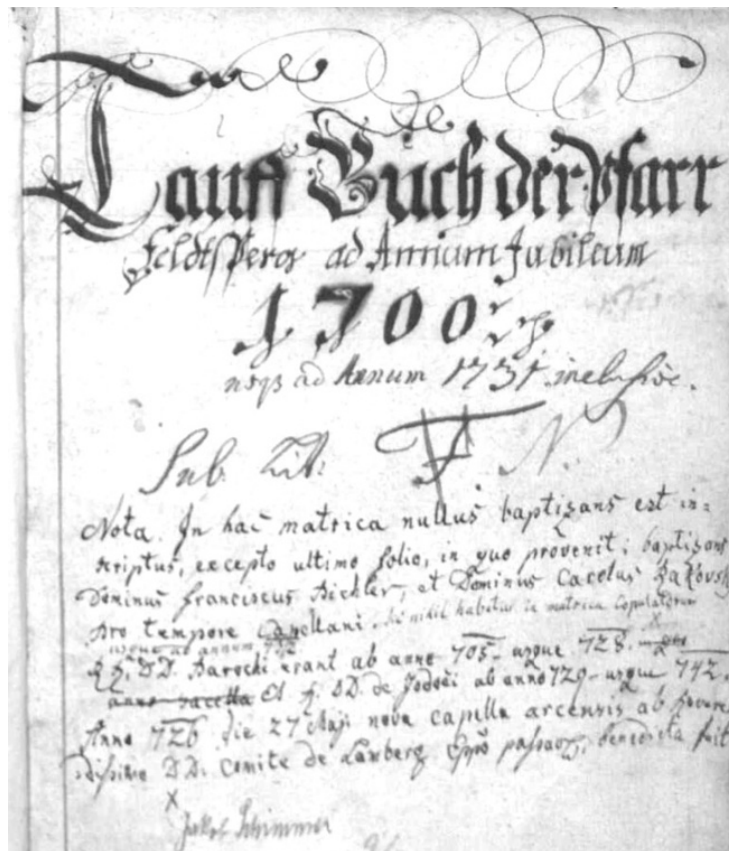 Tauff Buch der Pfarr
Feldtsperg ad Annum Jubileum
1700
usqs ad Annum 1731 inclusive.
Sub. Lit. F. N.
Nota. In hac matrica nullus baptizans est in=
scriptus, excepto ultimo folio, in quo provenit; baptizans
Dominus Franciscus Bichler, et Dominus Carolus
pro tempore Capellani. nihil habetur in matrica Copulatorum
usque ad annum
DD. Parochi erant ab anno 705 usque 728.
anno et DD. de Jodoci ab anno 729 usque 742.
Anno 726 die 27 Maji nova capella arcensis ab
Reveren
dissimo DD. Comite de Lamberg Eppō benedicta fuit
x
Jakob Schimmer